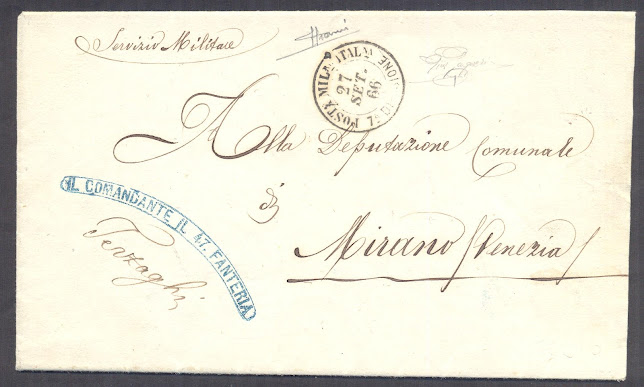 Servizio Militare
POSTA MILᴱ ITALᴬ
27
SET.
66
Alla Deputazione Comunale
di
Mirano (Venezia)
IL COMANDANTE IL 47. FANTERIA
Terzaghi